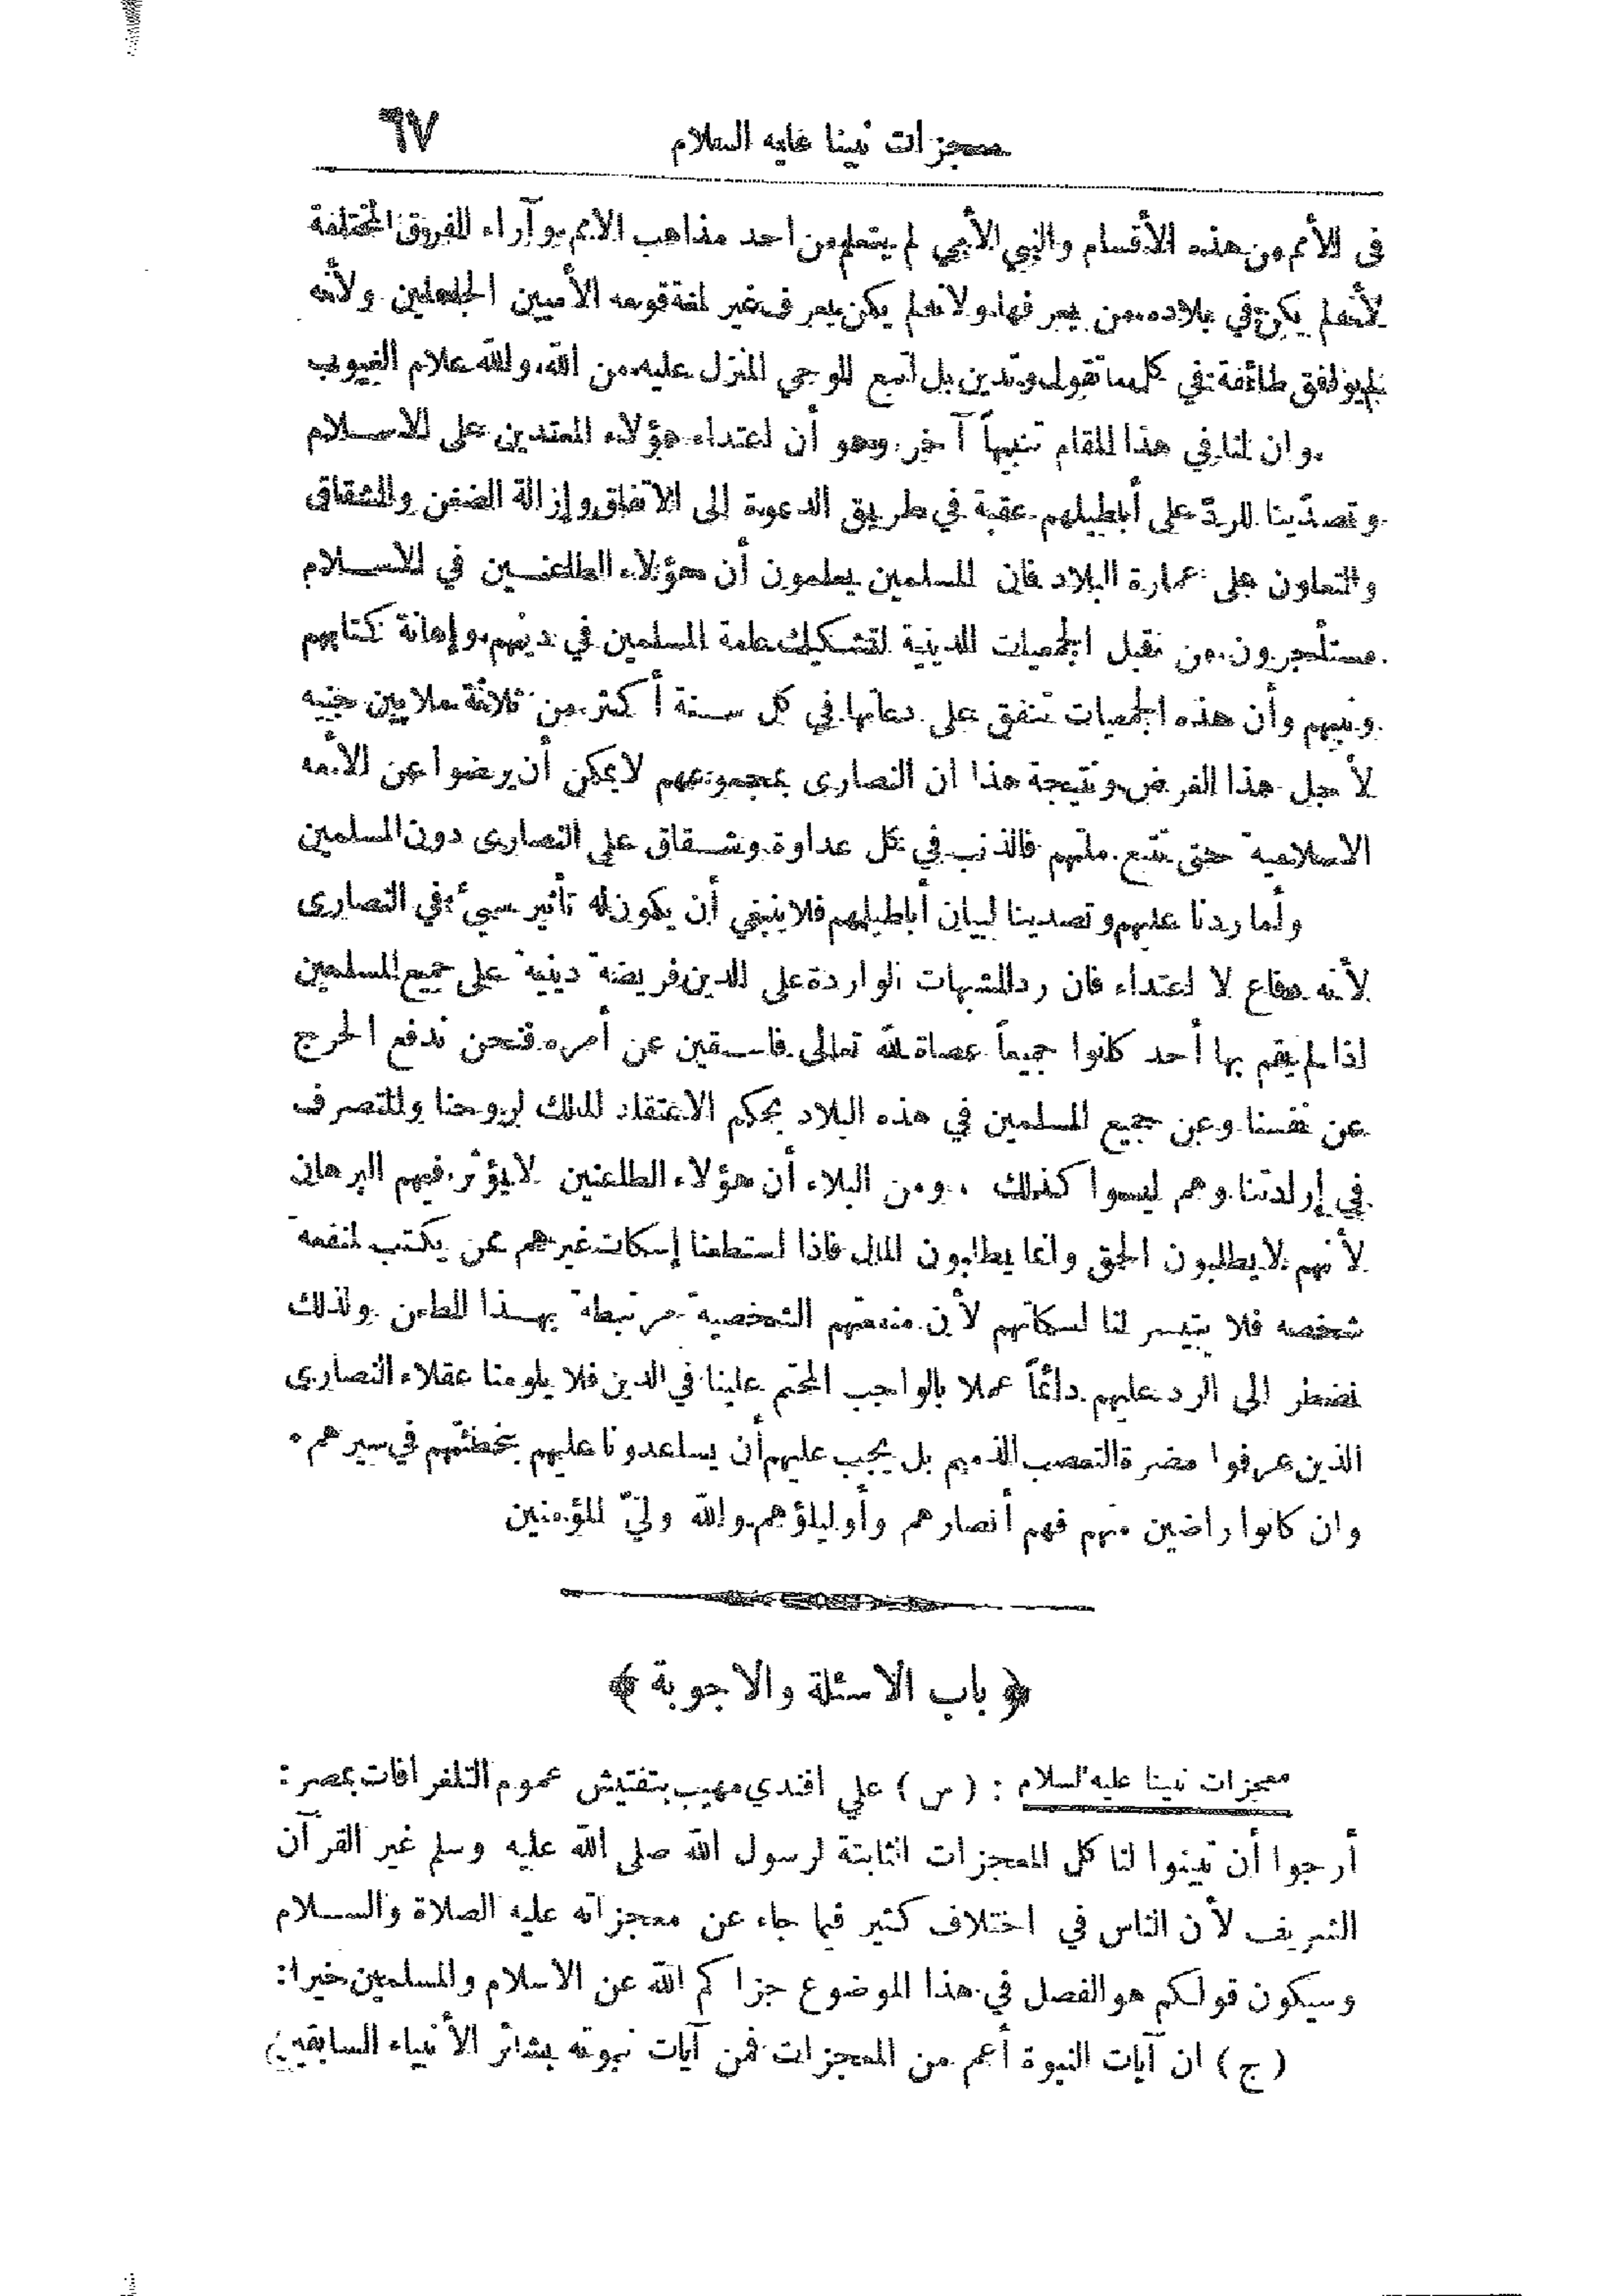 معجزات نبينا عليه السلام ٦٧
فى الأمم من هذه الأقسام والنبي الأمي لم يتعلم من احد مذاهب الامم وآراء الفرق المختلفة
لأنه لم يكن في بلاده من يعرفها ولانه لم يكن يعرف غير لغة قومه الأميين الجاهلين ولأنه
لم يوافق طائفة في كل ما تقول وتدين بل اتبع الوحي المنزل عليه من الله والله علام الغيوب
وان لنا في هذا المقام تنبيهاً آخر وهو أن اعتداء هؤلاء المعتدين على الاسلام
وتصدّينا للردّ على أباطيلهم عقبة في طريق الدعوة إلى الاتفاق وإزالة الضغن والشقاق
والتعاون على عمارة البلاد فان المسلمين يعلمون أن هؤلاء الطاعنين في الاسلام
مستأجرون من قبل الجمعيات الدينية لتشكيك عامة المسلمين في دينهم وإهانة كتابهم
ونبيهم وأن هذه الجمعيات تنفق على دعاتها في كل سنة أكثر من ثلاثة ملايين جنيه
لأجل هذا الغرض ونتيجة هذا ان النصارى بمجموعهم لا يمكن أن يرضوا عن الأمة
الاسلامية حتى تتبع ملتهم فالذنب في كل عداوة وشقاق على النصارى دون المسلمين
وأما ردنا عليهم وتصدينا لبيان أباطيلهم فلا ينبغي أن يكون له تأثير سيئ في النصارى
لأنه دفاع لا اعتداء فان رد الشبهات الواردة على الدين فريضة دينية على جميع المسلمين
اذا لم يقم بها أحد كانوا جميعاً عصاة لله تعالى فاسقين عن أمره فنحن ندفع الحرج
عن نفسنا وعن جميع المسلمين في هذه البلاد بحكم الاعتقاد المالك لروحنا والمتصرف
في إرادتنا وهم ليسوا كذلك . ومن البلاء أن هؤلاء الطاعنين لا يؤثر فيهم البرهان
لأنهم لا يطلبون الحق وانما يطلبون المال فاذا استطعنا إسكات غيرهم عن يكتب لمنفعة
شخصه فلا يتيسر لنا اسكاتهم لأن منفعتهم الشخصية مرتبطة بهذا الطعن ولذلك
نضطر الى الرد عليهم دائماً عملا بالواجب المحتم علينا في الدين فلا يلومنا عقلاء النصارى
الذين عرفوا مضرة التعصب الذميم بل يجب عليهم أن يساعدونا عليهم بتخطئتهم في سيرهم .
وان كانوا راضين منهم فهم أنصارهم وأولياؤهم والله وليّ المؤمنين
﴿ باب الاسئلة والاجوبة ﴾
معجزات نبينا عليه السلام : ( س ) علي افندي مهيب بتفتيش عموم التلغرافات بمصر :
أرجوا أن تبينوا لنا كل المعجزات الثابتة لرسول الله صلى الله عليه وسلم غير القرآن
الشريف لأن الناس في اختلاف كثير فيما جاء عن معجزاته عليه الصلاة والسلام
وسيكون قولكم هو الفصل في هذا الموضوع جزاكم الله عن الاسلام والمسلمين خيرا :
( ج ) ان آيات النبوة أعم من المعجزات فمن آيات نبوته بشائر الأنبياء السابقين